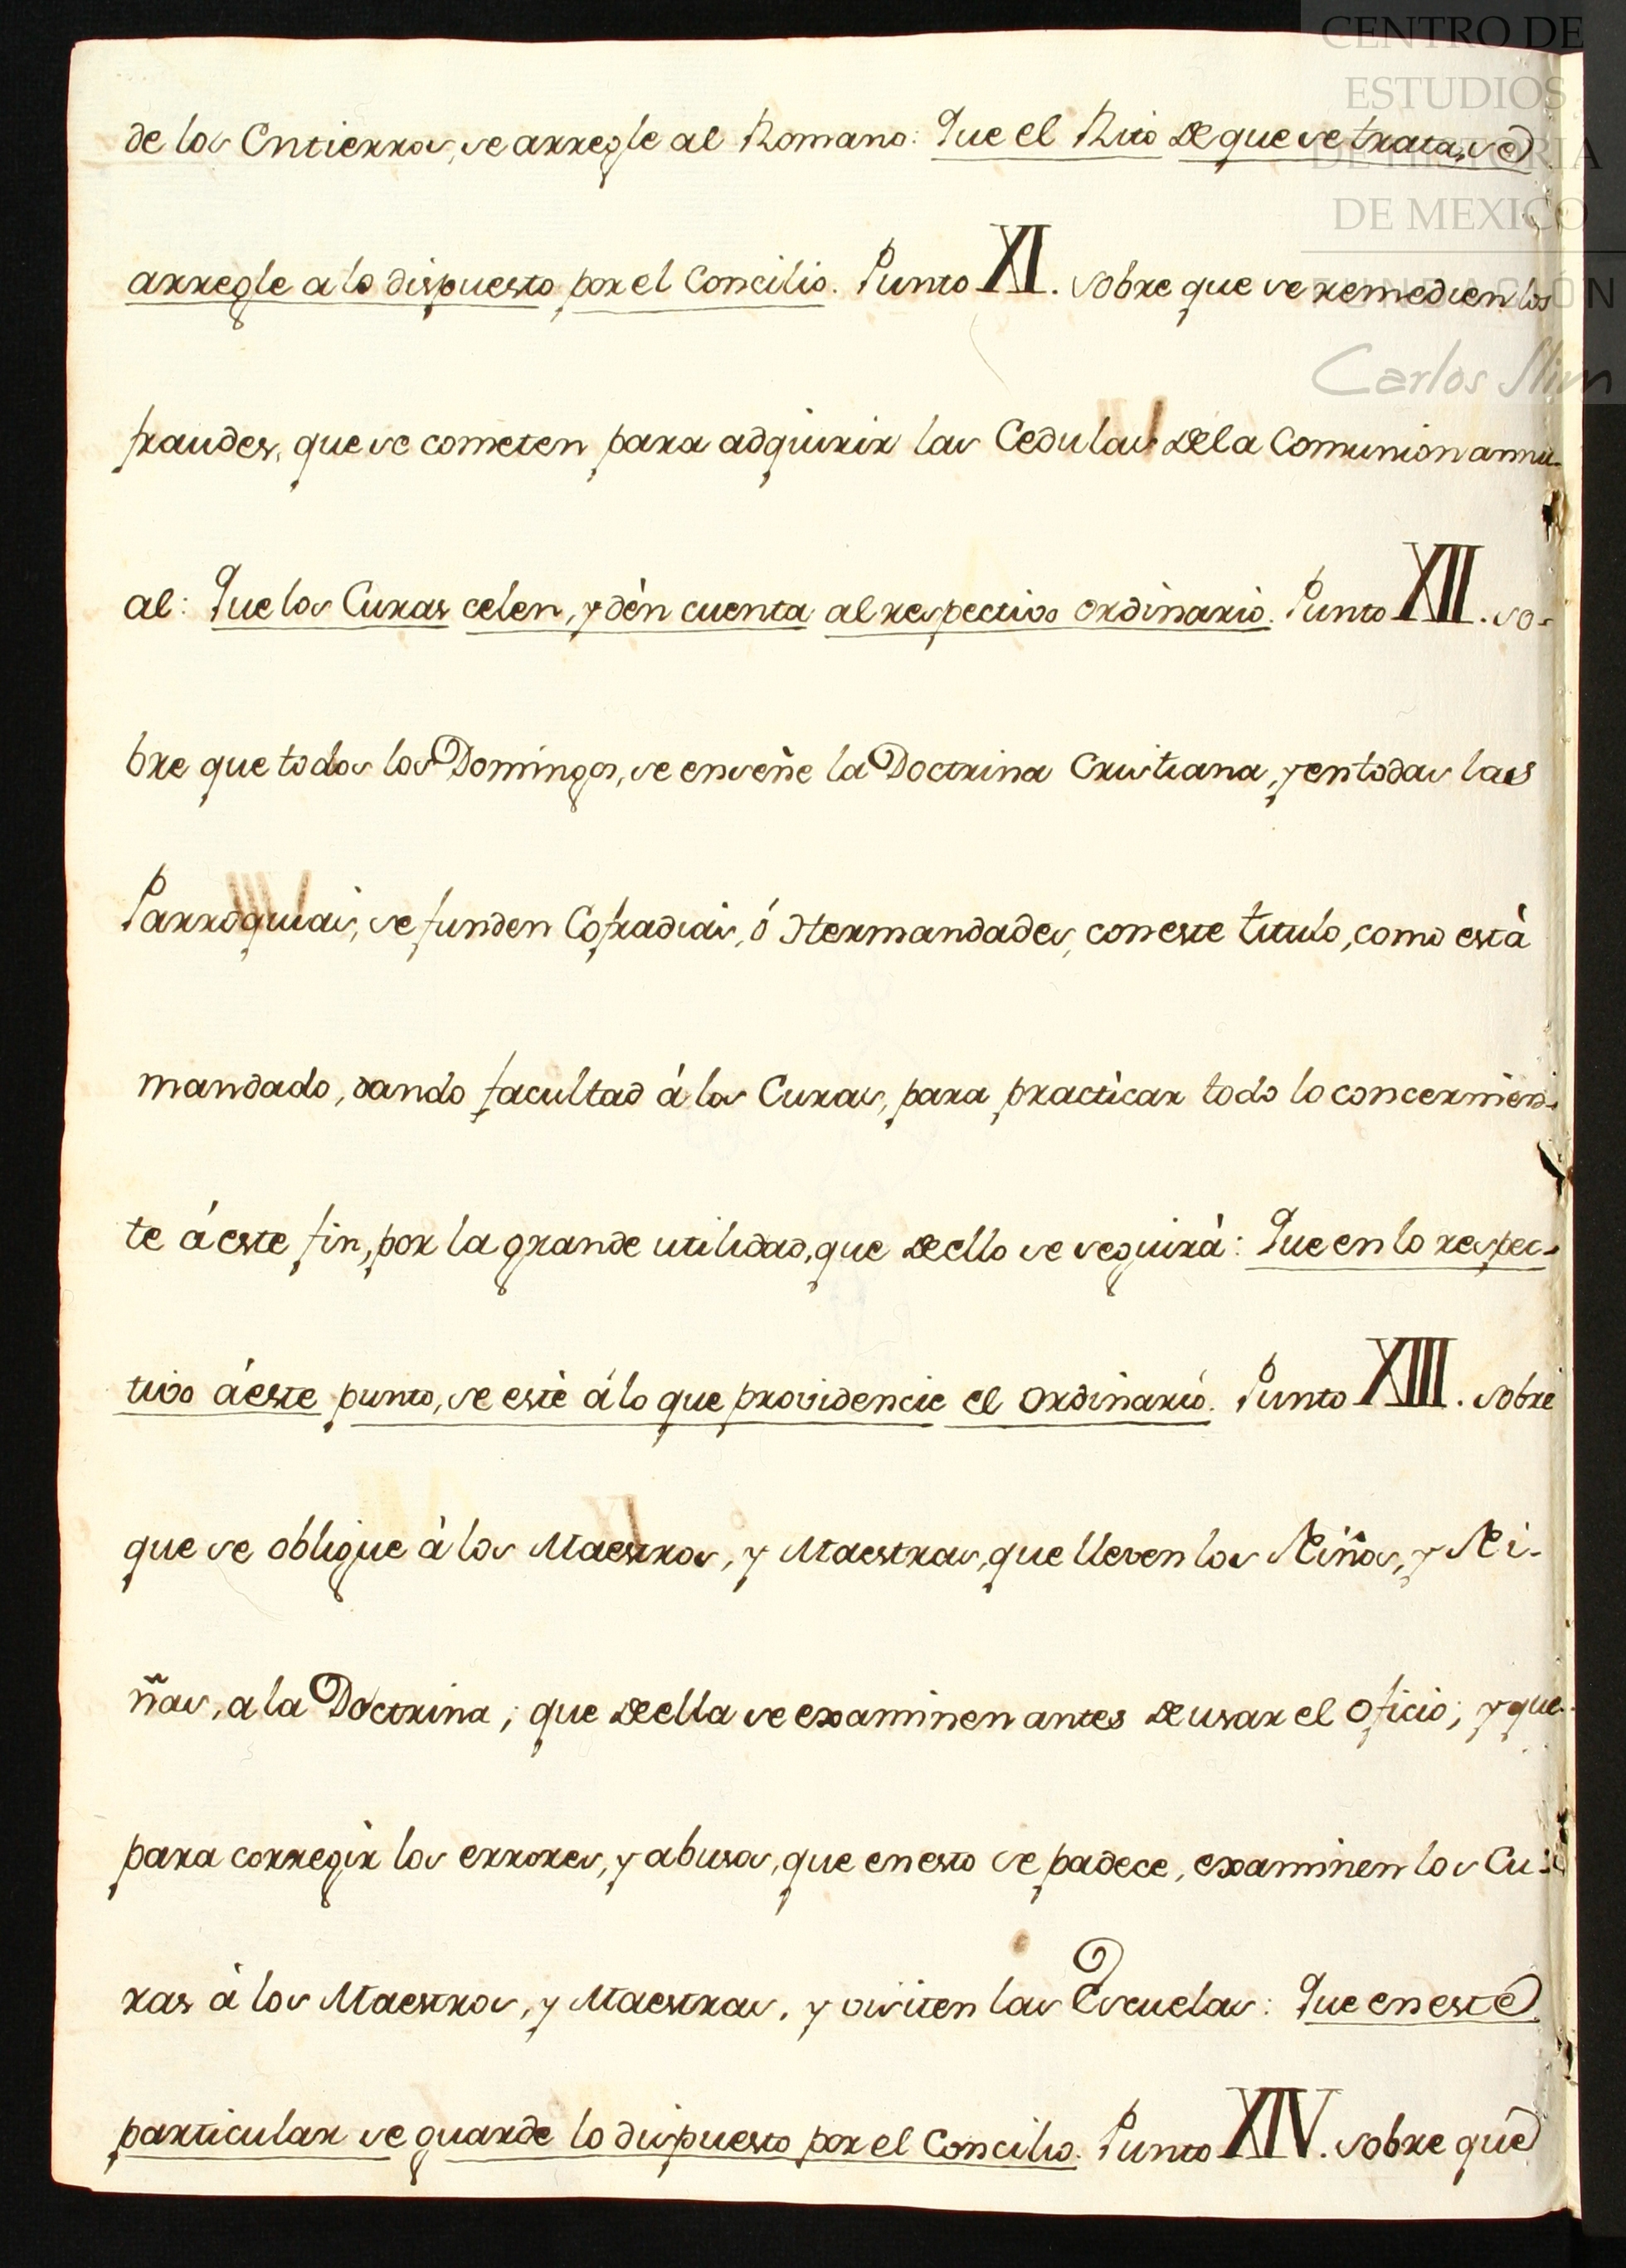 CENTRO DE
ESTUDIOS
DE HISTORIA
DE MEXICO
FUNDACIÓN
Carlos Slim
de los Entierros, se arregle al Romano: Que el Rito de que se trata, se
arregle a lo dispuesto por el Concilio. Punto XI. sobre que se remedien los
fraudes, que se cometen para adquirir las Cedulas de la Comunion annu-
al: Que los Curas celen, y dèn cuenta al respectivo Ordinario. Punto XII. so-
bre que todos los Domingos, se enseñe la Doctrina Cristiana, y en todas las
Parroquias, se funden Cofradias, ó Hermandades, con este titulo, como està
mandado, dando facultad á los Curas, para practicar todo lo concernien-
te á este fin, por la grande utilidad, que de ello se seguirà: Que en lo respec-
tivo á este punto, se estè á lo que providencie el Ordinario. Punto XIII. sobre
que se obligue à los Maestros, y Maestras, que lleven los Niños, y Ni-
ñas, a la Doctrina; que de ella se examinen antes de usar el Oficio; y que
para corregir los errores, y abusos, que en esto se padece, examinen los Cu-
ras à los Maestros, y Maestras, y visiten las Escuelas: Que en este
particular se guarde lo dispuesto por el Concilio. Punto XIV. sobre que